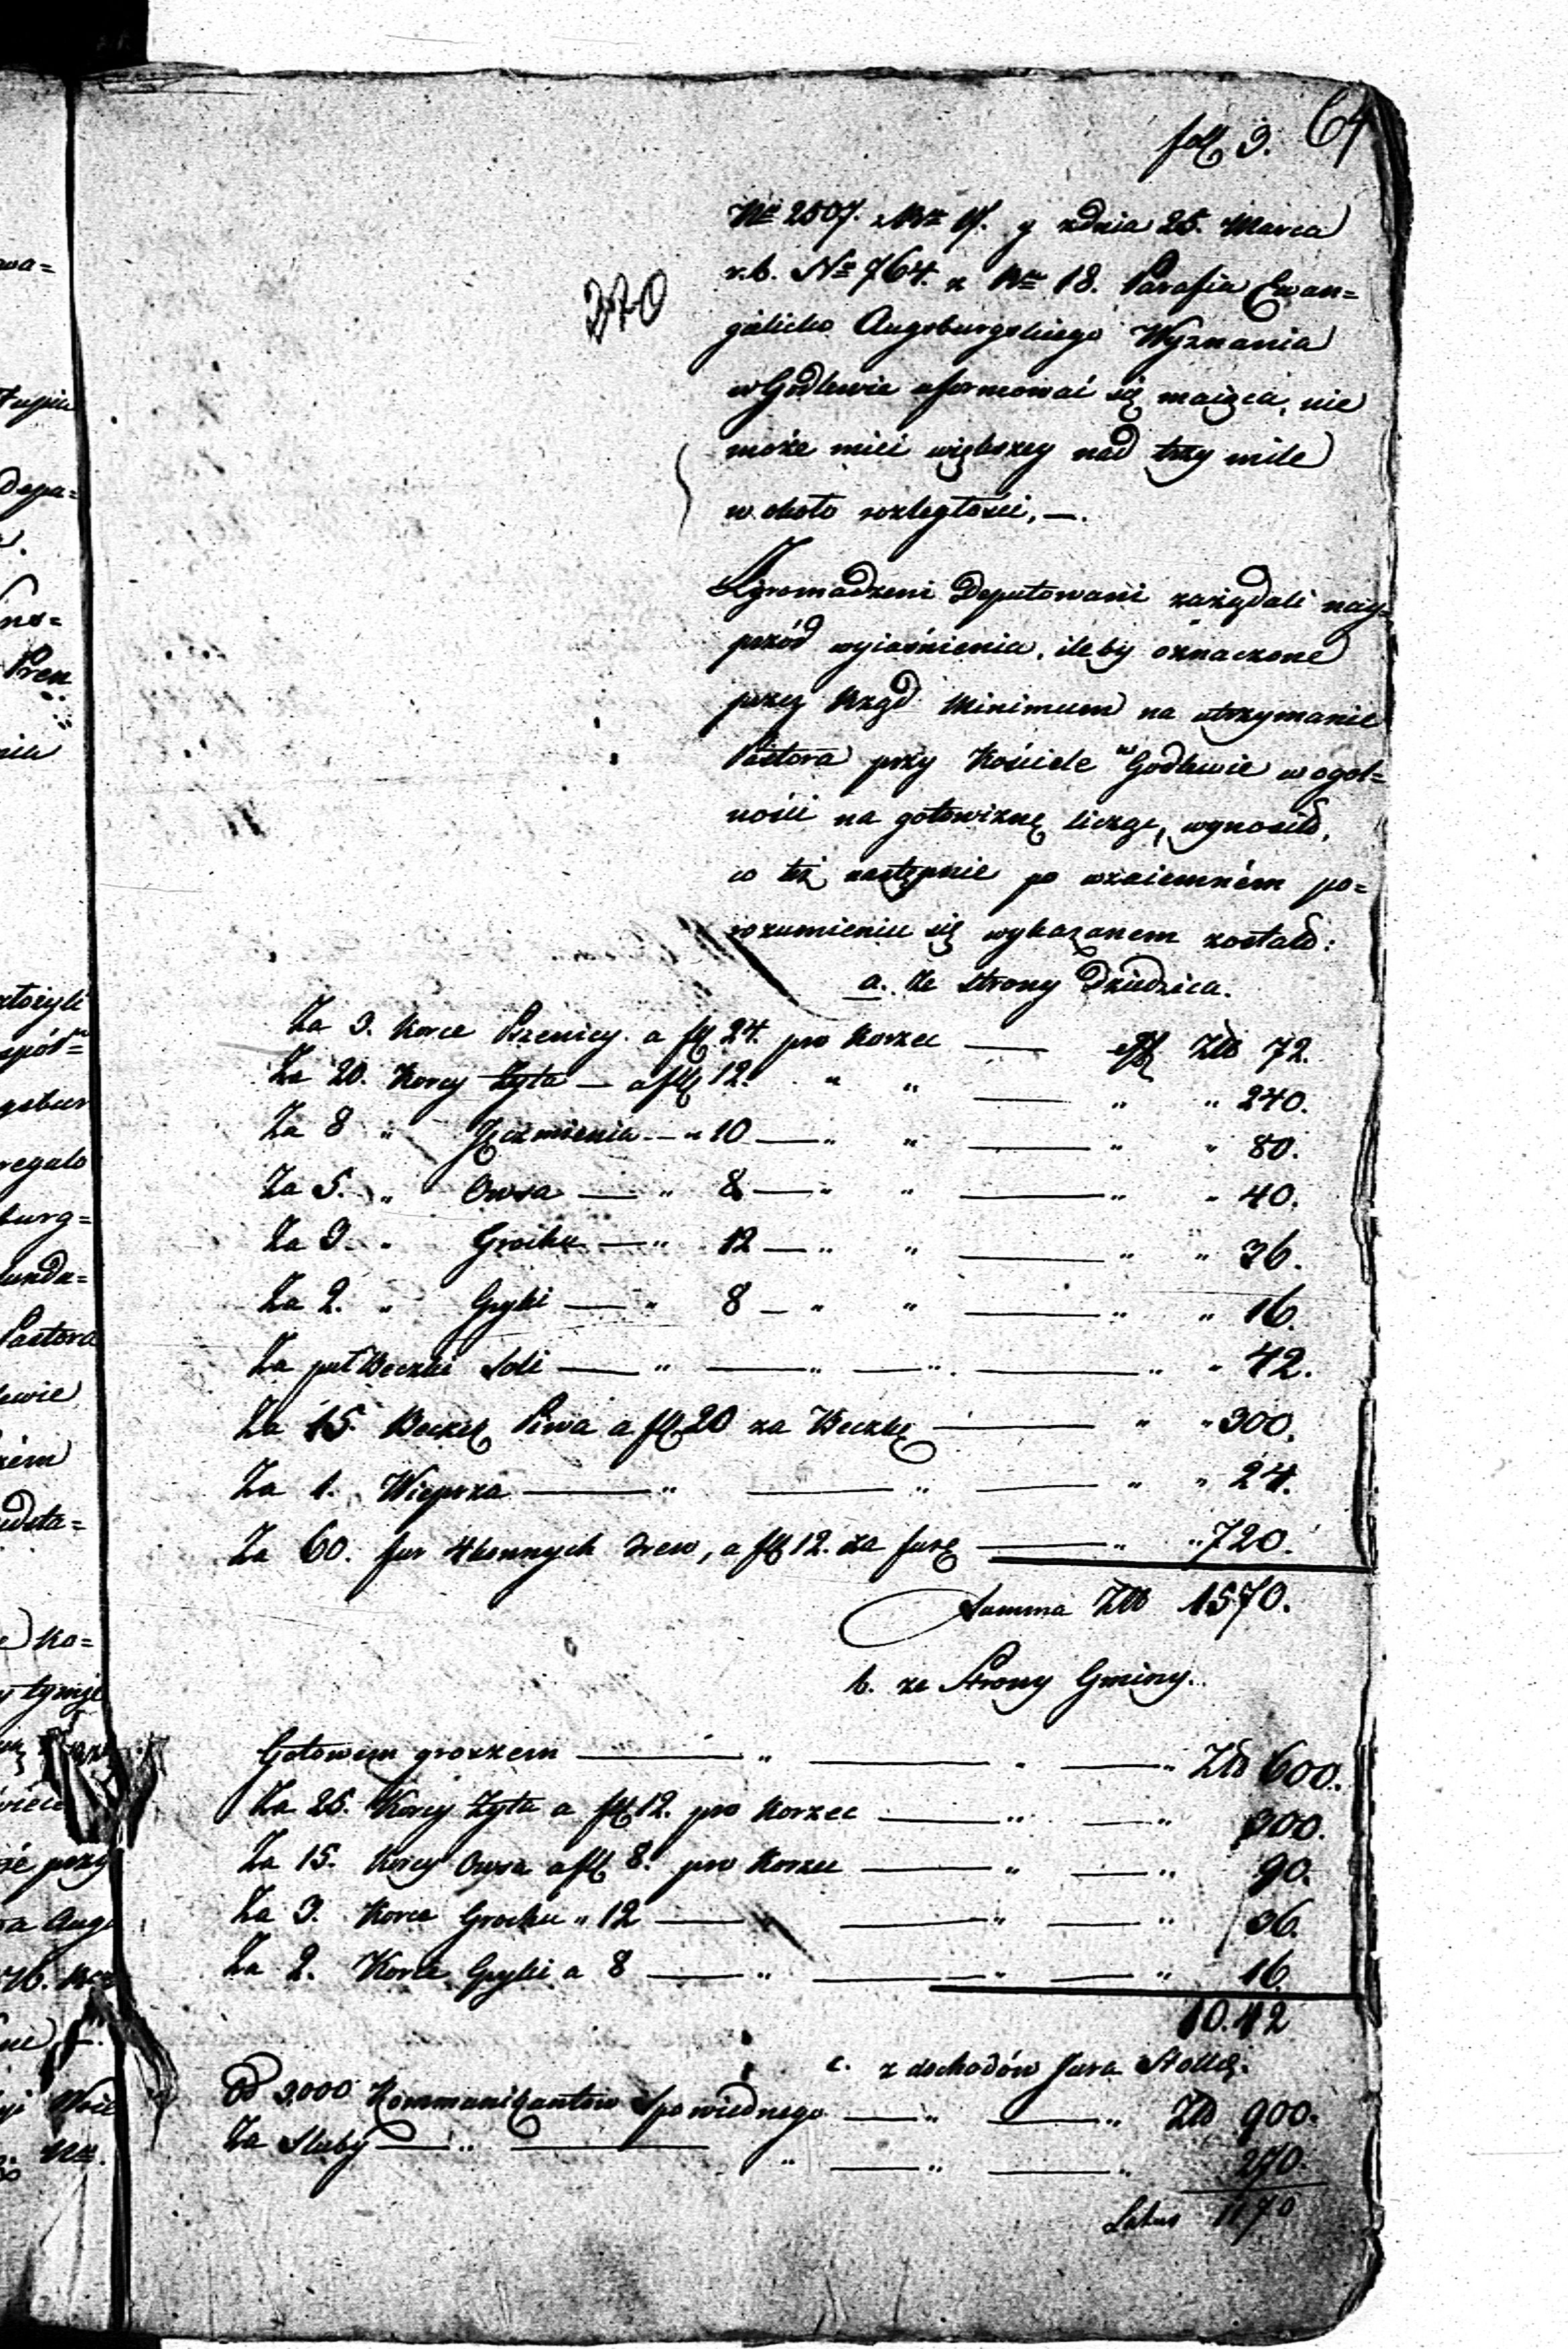 fol 3. 64
Nro 2507. Nro 17. y z dnia 25. Marca
r. b. Nro 764. z Nro 18. Parafia Ewan=
gielicko Augsburgskiego Wyznania
w Godlewie uformować się maiąca, nie
może mieć większey nad trzy mile
w około rozległości, —.
320
Zgromadzeni Deputowani zażądali nay=
przód wyiaśnienia, ileby oznaczone
przez Rząd Minimum na utrzymanie
Pastora przy Kościele w Godlewie w ogol=
ności na gotowiznę licząc, wynosiło,
co też następnie po wzaiemném po=
rozumieniu się wykazanem zostało:
a. Ze strony Dziedzica.
Za 3. Korce Pszenicy a fl 24. pro Korzec — Złł 72.
Za 20. Korcy Żyta — a fl 12. " " — " " 240.
Za 8 " Jęczmienia — " 10 — " " — " " 80.
Za 5. " Owsa — " 8 — " " — " " 40.
Za 3. " Grochu — " 12 — " " — " " 36.
Za 2. " Gryki — " 8 — " " — " " 16.
Za puł Beczki Soli — " — " — " — " " 42.
Za 15. Beczek Piwa a fl 20 za Beczkę — " " 300.
Za 1. Wieprza — " — " — " " 24.
Za 60. fur 4konnych drew, a fl 12. za furę — " " 720.
Summa Złł 1570.
b. ze Strony Gminy.
Gotowem groszem — " — " — " Złł 600.
Za 25. Korcy Żyta a fl 12. pro Korzec — " — " 300.
Za 15. Korcy Owsa a fl 8. pro Korzec — " — " 90.
Za 3. Korce Grochu " 12 — " — " — " 36.
Za 2. Korce Gryki a 8 — " — " — " 16.
10.42
c. z dochodów Jura Stollæ.
Od 3,000 Kommunikantów Spowiednego — " — " Złł 900.
Za Sluby — " — " — " — " 270.
Latus 1170